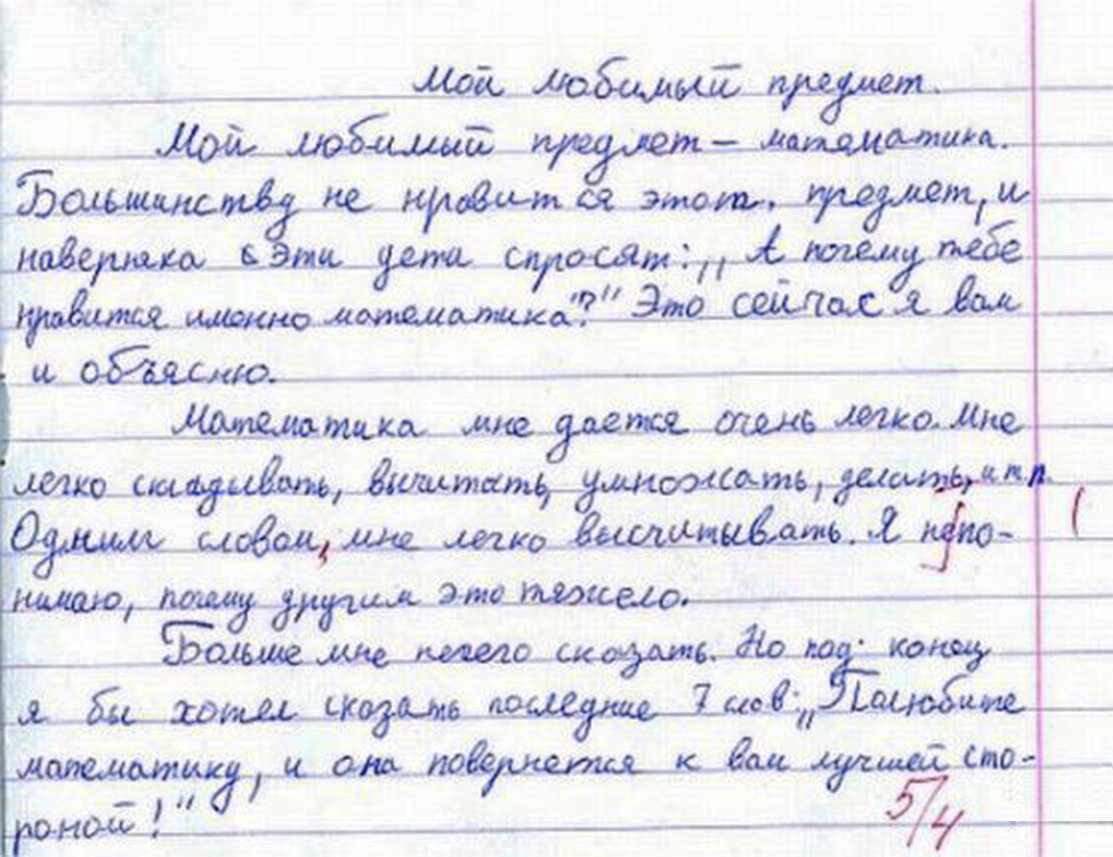 Мой любимый предмет.
Мой любимый предмет – математика.
Большинству не нравится этот. предмет, и
наверняка эти дети спросят: „А почему тебе
нравится именно математика?" Это сейчас я вам
и объясню.
Математика мне дается очень легко. Мне
легко складывать, вычитать, умножать, делать, и т.п.
Одним словом, мне легко высчитывать. Я непо-
нимаю, почему другим это тяжело.
Больше мне нечего сказать. Но под конец
я бы хотел сказать последние 7 слов: „Полюбите
математику, и она повернется к вам лучшей сто-
роной!"
5/4